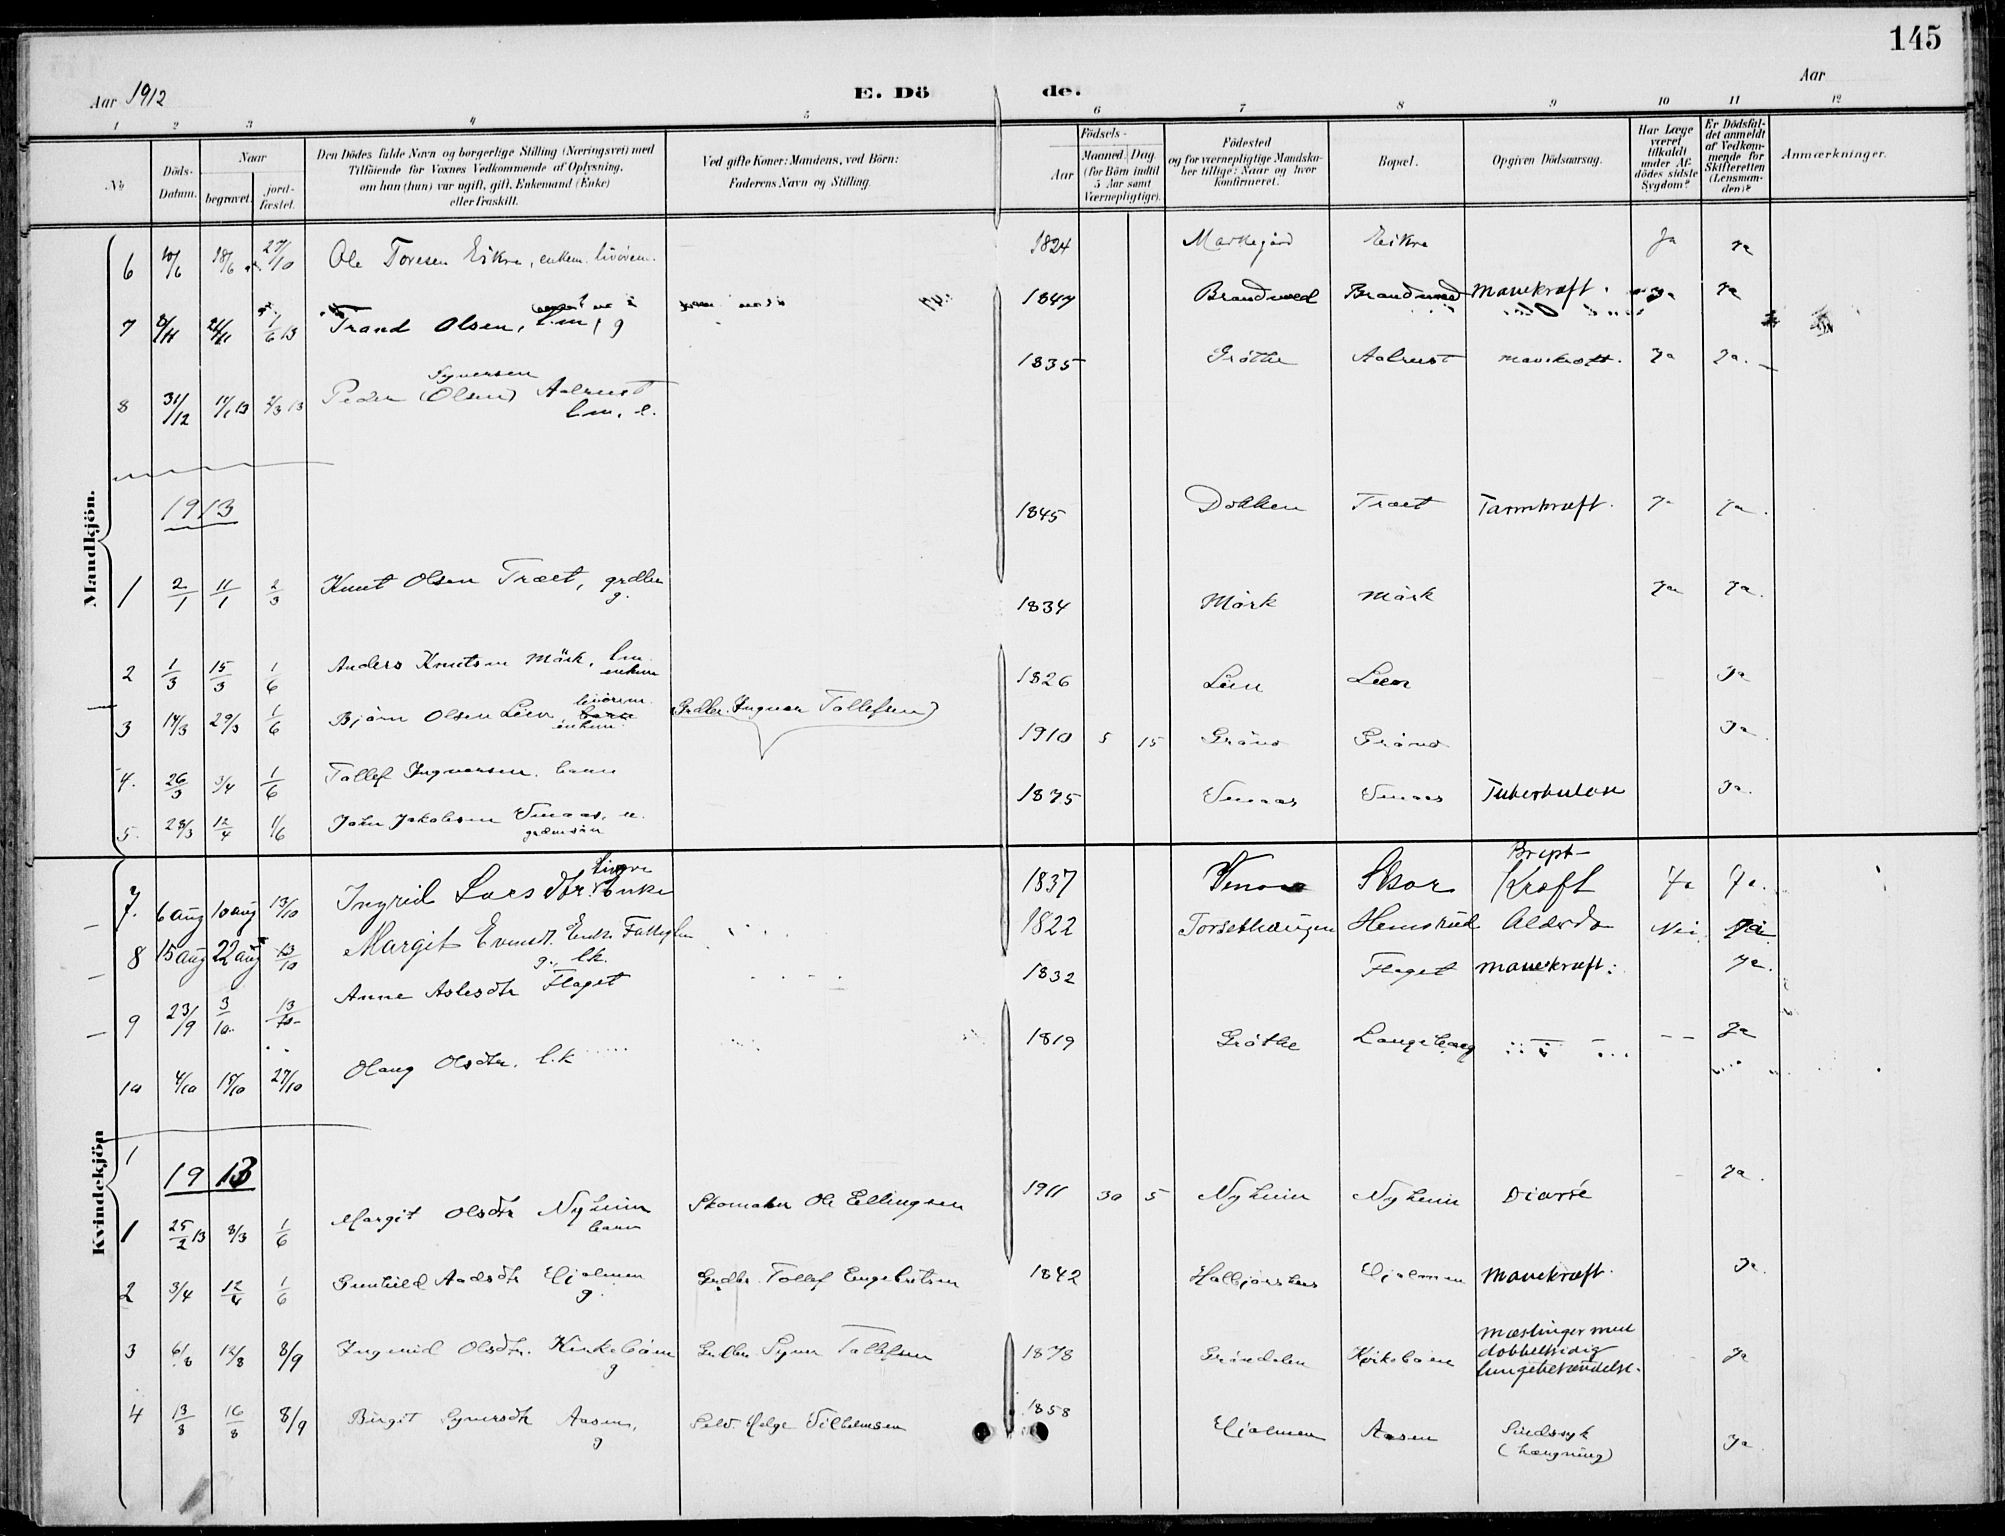 145
Aar 1912
E. Dö de.
Aar
1 2 3 4 5 6 7 8 9 10 11 12
No
Döds-Datum.
Naar
begravet.
jord-fæstet.
Den Dödes fulde Navn og borgerlige Stilling (Næringsvei) med
Tilföiende for Voxnes Vedkommende af Oplysning,
om han (hun) var ugift, gift, Enkemand (Enke)
eller fraskilt.
Ved gifte Koner: Mandens, ved Börn:
Faderens Navn og Stilling.
Födsels-
Aar
Maaned. Dag.
(for Börn indtil
5 Aar samt
Værnepligtige).
Födested
og for værnepligtige Mandska-
ber tillige: Naar og hvor
konfirmeret.
Bopæl.
Opgiven Dödsaarsag.
Har Læge
været
tilkaldt
under Af-
dödes sidste
Sygdom?
Er Dödsfal-
det anmeldt
af Vedkom-
mende for
Skifteretten
(Lensman-
den)?
Anmærkninger.
Mandkjön.
6 10/6 18/6 27/10 Ole Toresen Eikre, enkem. livören. 1824 Markegård Eikre Ja ja
7 8/11 21/11 1/6 13 Trand Olsen, l.m, g 1847 Brandvold Brandvold Mavekræft. ja ja
8 31/12 14/1 13 2/3 13 Peder (Olsen) Syversen Aalrust l.m. e. 1835 Gröthe Aalrust mavekræft. ja ja.
1913
1 2/1 11/1 2/3 Knut Olsen Træet, grdbr g. 1845 Dokken Træet Tarmkræft. ja ja.
2 1/3 15/3 1/6 Anders Knutsen Mörk, l.m. enkem 1834 Mörk Mörk ja ja.
3 14/3 29/3 1/6 Björn Olsen Leen livören. enkem. 1826 Leen Leen ja
4. 26/3 3/4 1/6 Tollef Ingvarsen. barn (Grdbr. Ingvar Tollefsen) 1910 5 15 Grönd Grönd ja.
5. 28/3 12/4 1/6 John Jakobsen Venaas, u. grdmsön 1875 Venaas Venaas Tuberkulose ja.
Kvindekjön
7. 6 aug 10 aug 13/10 Ingrid Larsdtr. enke 1837 Skor Bryst-Kræft Ja Ja.
8 15 aug 22 aug 13/10 Margit Evensdt. Enke Fattiglem 1822 Torsethaugen Hemsrud Alderdo Nei Ja.
9 23/9 3/10 13/10 Anne Aslesdtr Flaget g., l.k. 1832 Flaget Mavekræft. ja.
10 4/10 18/10 27/10 Olaug Olsdtr. l.k 1819 Gröthe Langehaug - - ja
1
1913
1 25/2 13 8/3 1/6 Margit Olsdtr Nyheim barn Skomaker Ole Ellingsen 1911 30 5 Nyheim Nyheim Diarré ja.
2 3/4 12/4 1/6 Gunhild Aadsdtr Hjelmen g. Grdbr. Tollef Engebretsen 1842 Halbjörhus Hjelmen Mavekræft. ja.
3 6/8 12/8 8/9 Ingerid Olsdtr. Kirkeböen g Grdbr. Syver Tollefsen 1878 Gröndalen Kirkeböen Mæslinger med dobbeltsidig lungebetændelse. ja
4 13/8 16/8 8/9 Birgit Syversdtr Aasen, g Selv. Helge Vilhelmsen 1858 Hjelmen Aasen Sindssyk (hængning) ja.